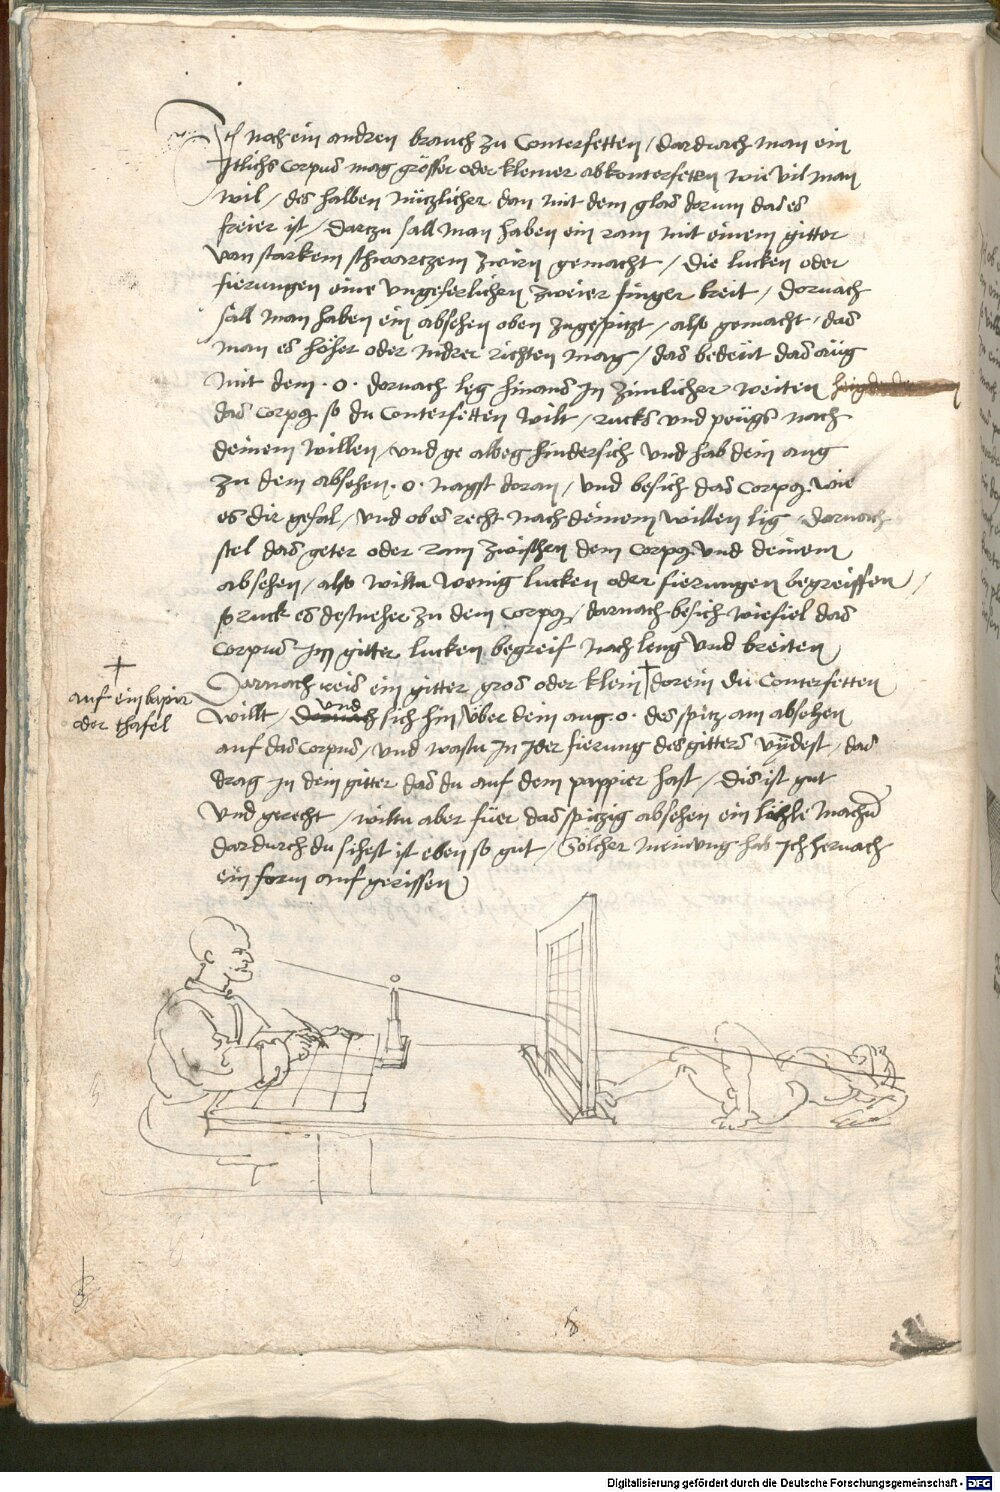 Ich noch ein andren brauch zu Conterfetten / dardurch man ein
Itlichs Corpus mag grösser oder kleiner abkonterfeten wie vil man
wil / des halben nützlicher dan mit dem glas dorum das es
freier ist / Dortzu sall man haben ein ram mit einem gitter
van starkem schwartzem zwirn gemacht / die lucken oder
fierungen eine ungeferlichen zweier finger breit / dornach
sall man haben ein absehen oben zugespitzt / also gemacht / das
man es höher oder nidrer richten mag / das bedeüt das aüg
mit dem . o . dornach leg hinaus in zimlicher weiten
das Corpus so du Conterfetten wilt / rucks und peügs nach
deinem willen / und ge albeg hindersich und hab dein aug
zu dem absehen . o . nagst doran / und besich das Corpus wie
es dir gefal / und ob es recht nach deinem willen lig / dornach
stel das geter oder ram zwischen dem Corpus und deinem
absehen / also wiltu wenig lucken oder fierungen begreiffen /
so ruck es dest neher zu dem Corpus / darnach besich wiefil das
Corpus im gitter lucken begreif nach leng und breiten
Darnach reis ein gitter gros oder klein † dorein du Conterfetten
† auf ein bapir
oder thafel
willt / und sich hin über dein aug . o . des spitz am absehen
auf das Corpus / und wastu in Ider fierung des gitters vÿdest / das
drag in dein gitter das du auf dem pappier hast / dis ist gut
und gerecht / wiltu aber füer das spitzig absehen ein löchle machen
dardurch du sihest ist eben so gut / Sölcher meinung hab ich hernach
ein form aufgerissen
Digitalisierung gefördert durch die Deutsche Forschungsgemeinschaft - DFG